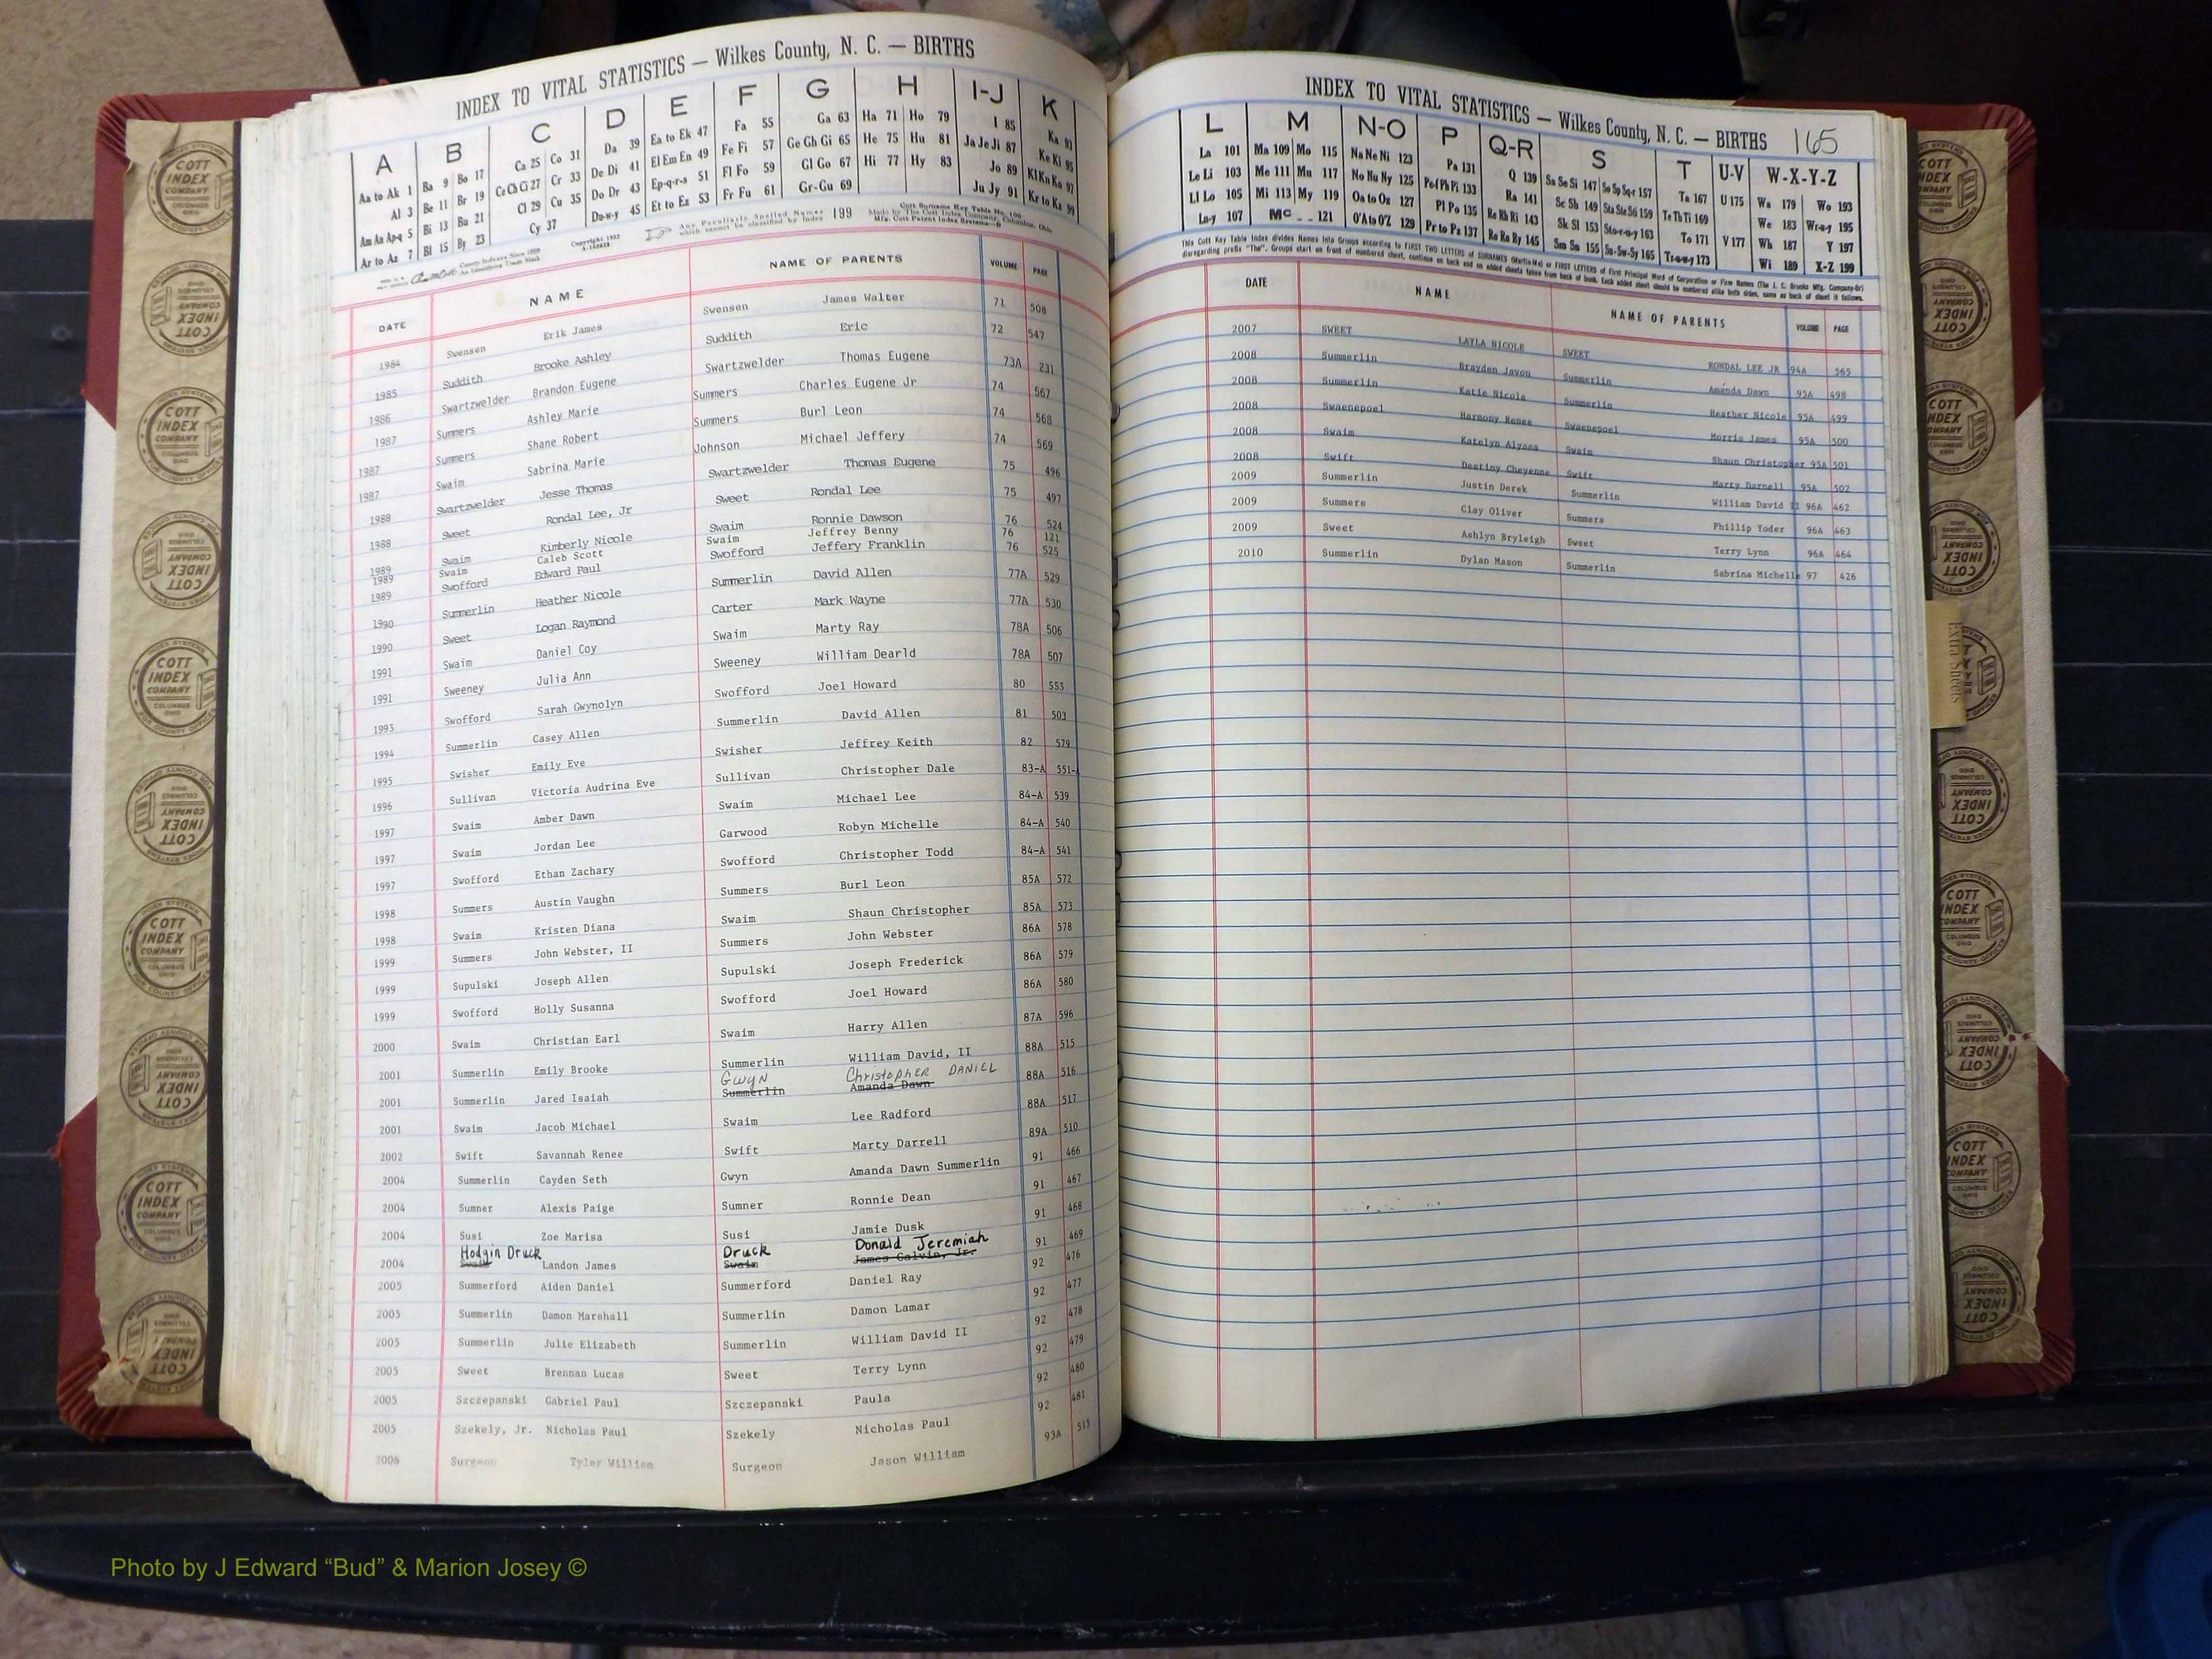 INDEX TO VITAL STATISTICS — Wilkes County, N. C. — BIRTHS
A B C D E F G H I-J K
Aa to Ak 1 Ba 9 Bo 17 Ca 25 Co 31 Da 39 Ea to Ek 47 Fa 55 Ga 63 Ha 71 Ho 79 I 85 Ka 93
Al 3 Be 11 Br 19 Ce Ch Ci 27 Cr 33 De Di 41 El Em En 49 Fe Fi 57 Ge Gh Gi 65 He 75 Hu 81 Ja Je Ji 87 Ke Ki 95
Am An Ap-q 5 Bi 13 Bu 21 Cl 29 Cu 35 Do Dr 43 Ep-q-r-s 51 Fl Fo 59 Gl Go 67 Hi 77 Hy 83 Jo 89 Kl Kn Ko 97
Ar to Az 7 Bl 15 By 23 Cy 37 Du-w-y 45 Et to Ez 53 Fr Fu 61 Gr-Gu 69 Ju Jy 91 Kr to Kz 99
Any Peculiarly Spelled Names which cannot be classified by Index 199
Cott Surname Key Table No. 100
Made by The Cott Index Company, Columbus, Ohio
Mfg. Cott Patent Index Systems
DATE NAME NAME OF PARENTS VOLUME PAGE
1984 Swensen Erik James Swensen James Walter 71 508
1985 Suddith Brooke Ashley Suddith Eric 72 547
1986 Swartzwelder Brandon Eugene Swartzwelder Thomas Eugene 73A 231
1987 Summers Ashley Marie Summers Charles Eugene Jr 74 567
1987 Summers Shane Robert Summers Burl Leon 74 568
1987 Swaim Sabrina Marie Johnson Michael Jeffery 74 569
1988 Swartzwelder Jesse Thomas Swartzwelder Thomas Eugene 75 496
1988 Sweet Rondal Lee, Jr Sweet Rondal Lee 75 497
1989 Swaim Kimberly Nicole Swaim Ronnie Dawson 76 524
1989 Swaim Caleb Scott Swaim Jeffrey Benny 76 121
1989 Swofford Edward Paul Swofford Jeffery Franklin 76 525
1990 Summerlin Heather Nicole Summerlin David Allen 77A 529
1990 Sweet Logan Raymond Carter Mark Wayne 77A 530
1991 Swaim Daniel Coy Swaim Marty Ray 78A 506
1991 Sweeney Julia Ann Sweeney William Dearld 78A 507
1993 Swofford Sarah Gwynolyn Swofford Joel Howard 80 553
1994 Summerlin Casey Allen Summerlin David Allen 81 503
1995 Swisher Emily Eve Swisher Jeffrey Keith 82 579
1996 Sullivan Victoria Audrina Eve Sullivan Christopher Dale 83-A 551-
1997 Swaim Amber Dawn Swaim Michael Lee 84-A 539
1997 Swaim Jordan Lee Garwood Robyn Michelle 84-A 540
1997 Swofford Ethan Zachary Swofford Christopher Todd 84-A 541
1998 Summers Austin Vaughn Summers Burl Leon 85A 572
1998 Swaim Kristen Diana Swaim Shaun Christopher 85A 573
1999 Summers John Webster, II Summers John Webster 86A 578
1999 Supulski Joseph Allen Supulski Joseph Frederick 86A 579
1999 Swofford Holly Susanna Swofford Joel Howard 86A 580
2000 Swaim Christian Earl Swaim Harry Allen 87A 596
2001 Summerlin Emily Brooke Summerlin William David, II 88A 515
Gwyn Christopher DANIEL
2001 Summerlin Jared Isaiah Summerlin Amanda Dawn 88A 516
2001 Swaim Jacob Michael Swaim Lee Radford 88A 517
2002 Swift Savannah Renee Swift Marty Darrell 89A 510
2004 Summerlin Cayden Seth Gwyn Amanda Dawn Summerlin 91 466
2004 Sumner Alexis Paige Sumner Ronnie Dean 91 467
2004 Susi Zoe Marisa Susi Jamie Dusk 91 468
Hodgin Druck Druck Donald Jeremiah
2004 Swaim Landon James Swaim James Calvin, Jr. 91 469
2005 Summerford Aiden Daniel Summerford Daniel Ray 92 476
2005 Summerlin Damon Marshall Summerlin Damon Lamar 92 477
2005 Summerlin Julie Elizabeth Summerlin William David II 92 478
2005 Sweet Brennan Lucas Sweet Terry Lynn 92 479
2005 Szczepanski Gabriel Paul Szczepanski Paula 92 480
2005 Szekely, Jr. Nicholas Paul Szekely Nicholas Paul 92 481
2006 Surgeon Tyler William Surgeon Jason William 93A 515
INDEX TO VITAL STATISTICS — Wilkes County, N. C. — BIRTHS 165
L M N-O P Q-R S T U-V W-X-Y-Z
La 101 Ma 109 Mo 115 Na Ne Ni 123 Pa 131 Q 139 Sa Se Si 147 So Sp Sq-r 157 Ta 167 U 175 Wa 179 Wo 193
Le Li 103 Me 111 Mu 117 No Nu Ny 125 Pe-f Ph Pi 133 Ra 141 Sc Sh 149 Sta Ste Sti 159 Te Th Ti 169 V 177 We 183 Wr-u-y 195
Ll Lo 105 Mi 113 My 119 Oa to Oz 127 Pl Po 135 Re Rh Ri 143 Sk Sl 153 Sto-r-u-y 163 To 171 Wh 187 Y 197
Lu-y 107 Mc 121 O'A to O'Z 129 Pr to Pz 137 Ro Ru Ry 145 Sm Sn 155 Su-Sw-Sy 165 Tr-u-w-y 173 Wi 189 X-Z 199
This Cott Key Table Index divides Names into Groups according to FIRST TWO LETTERS of SURNAMES (Martin-Ma) or FIRST LETTERS of First Principal Word of Corporation or Firm Names (The J. C. Brooks Mfg. Company-Br)
disregarding prefix "The". Groups start on front of numbered sheet, continue on back and on added sheets taken from back of book. Each added sheet should be numbered alike both sides, same as back of sheet it follows.
DATE NAME NAME OF PARENTS VOLUME PAGE
2007 SWEET LAYLA NICOLE SWEET RONDAL LEE JR 94A 565
2008 Summerlin Brayden Javon Summerlin Amanda Dawn 95A 498
2008 Summerlin Katie Nicole Summerlin Heather Nicole 95A 499
2008 Swaenepoel Harmony Renee Swaenepoel Morris James 95A 500
2008 Swaim Katelyn Alyssa Swaim Shaun Christopher 95A 501
2008 Swift Destiny Cheyenne Swift Marty Darnell 95A 502
2009 Summerlin Justin Derek Summerlin William David II 96A 462
2009 Summers Clay Oliver Summers Phillip Yoder 96A 463
2009 Sweet Ashlyn Bryleigh Sweet Terry Lynn 96A 464
2010 Summerlin Dylan Mason Summerlin Sabrina Michelle 97 426
Extra Sheets
COTT INDEX COMPANY COLUMBUS OHIO
Photo by J Edward “Bud” & Marion Josey ©